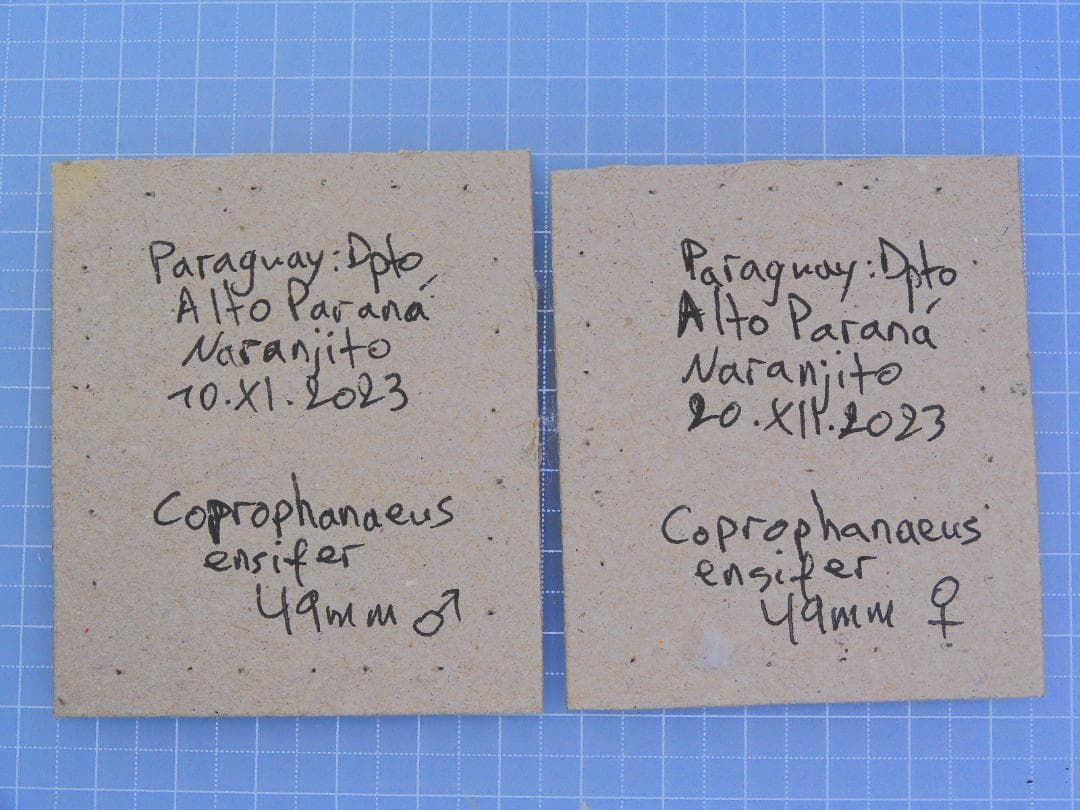 Paraguay: Dpto
Alto Paraná
Naranjito
10.XI.2023
Coprophanaeus
ensifer
49mm ♂
Paraguay: Dpto
Alto Paraná
Naranjito
20.XII.2023
Coprophanaeus
ensifer
49mm ♀